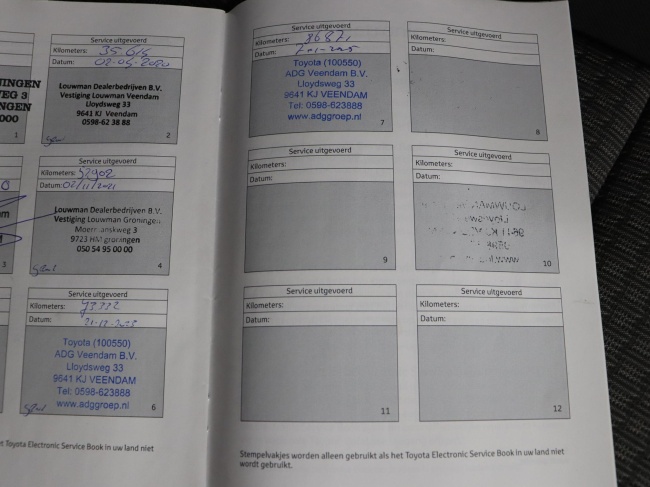 Service uitgevoerd
Kilometers: 35.615
Datum: 02-05-2020
Louwman Dealerbedrijven B.V.
Vestiging Louwman Veendam
Lloydsweg 33
9641 KJ Veendam
0598-62 38 88
2
NINGEN
EG 3
NGEN
000
1
Service uitgevoerd
Kilometers: 52902
Datum: 02/11/2021
Louwman Dealerbedrijven B.V.
Vestiging Louwman Groningen
9723 HM groningen
050 54 95 00 00
4
3
Service uitgevoerd
Kilometers:
Datum: 21-12-2023
Toyota (100550)
ADG Veendam B.V.
Lloydsweg 33
9641 KJ VEENDAM
Tel: 0598-623888
www.adggroep.nl
6
t Toyota Electronic Service Book in uw land niet
Service uitgevoerd
Kilometers:
Datum:
Toyota (100550)
ADG Veendam B.V.
Lloydsweg 33
9641 KJ VEENDAM
Tel: 0598-623888
www.adggroep.nl
7
Service uitgevoerd
Kilometers:
Datum:
8
Service uitgevoerd
Kilometers:
Datum:
9
Service uitgevoerd
Kilometers:
Datum:
10
Service uitgevoerd
Kilometers:
Datum:
11
Service uitgevoerd
Kilometers:
Datum:
12
Stempelvakjes worden alleen gebruikt als het Toyota Electronic Service Book in uw land niet
wordt gebruikt.